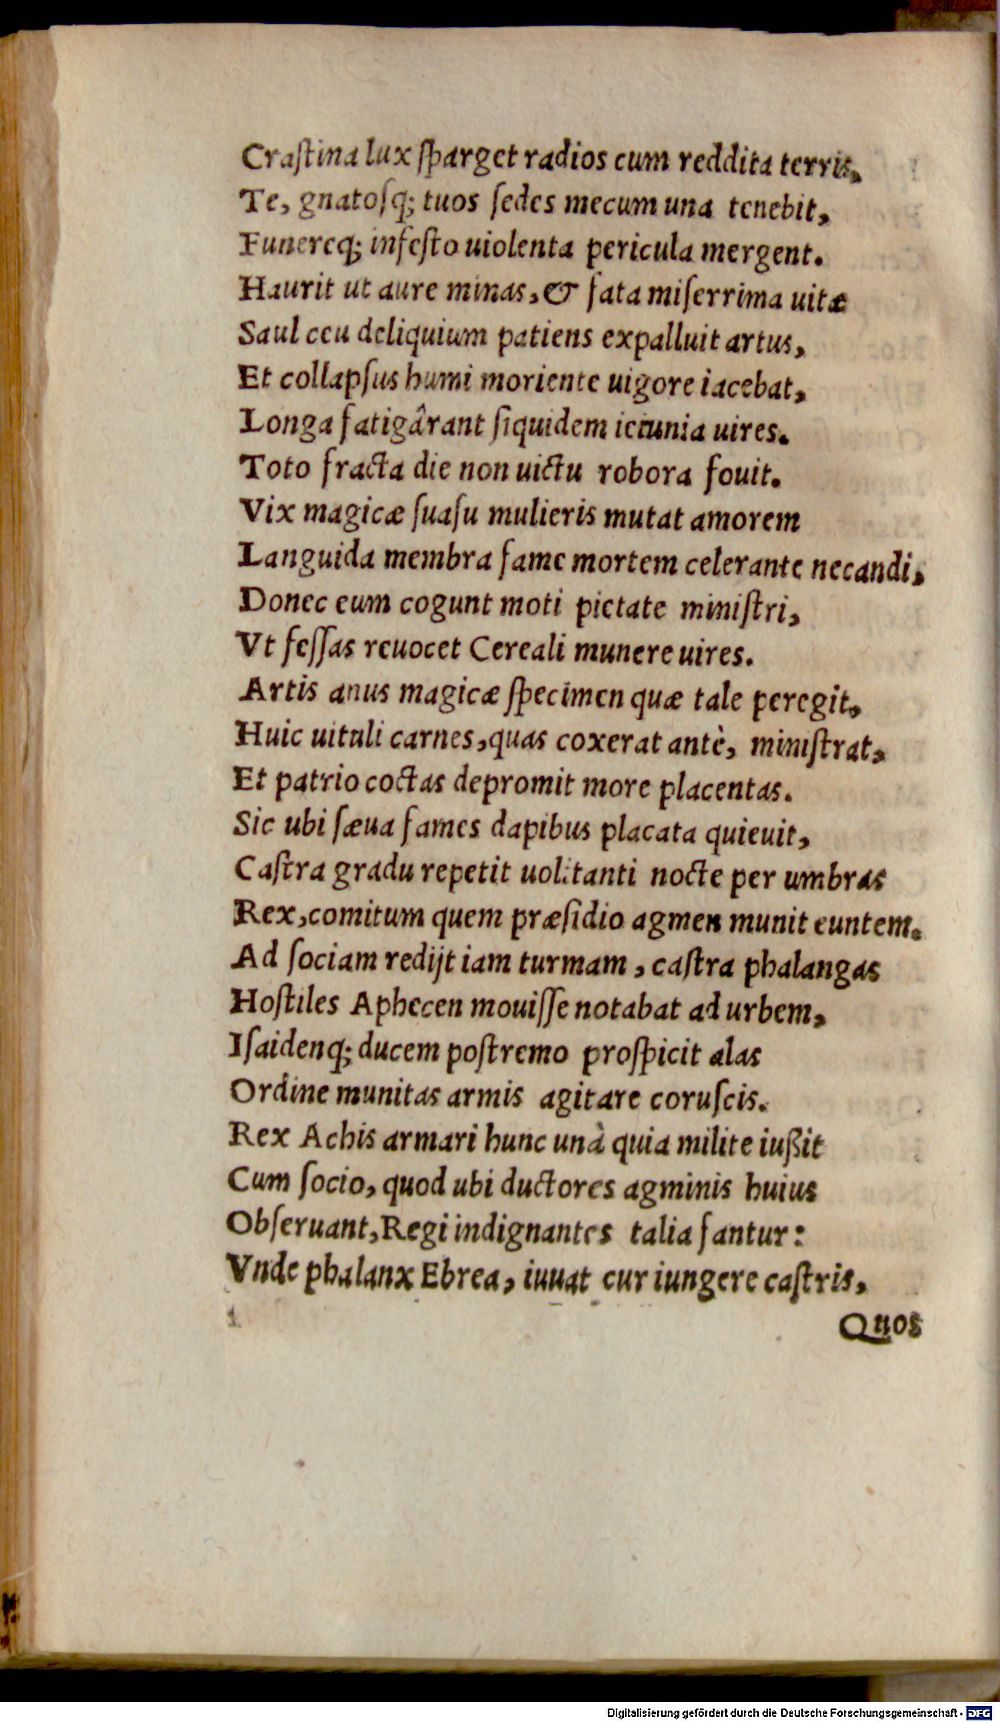 Craſtina lux ſparget radios cum reddita terris,
Te, gnatoſq; tuos ſedes mecum una tenebit,
Funereq; infeſto uiolenta pericula mergent.
Haurit ut aure minas, & fata miſerrima uitæ
Saul ceu deliquium patiens expalluit artus,
Et collapſus humi moriente uigore iacebat,
Longa fatigârant ſiquidem ieiunia uires.
Toto fracta die non uictu robora fouit.
Vix magicæ ſuaſu mulieris mutat amorem
Languida membra fame mortem celerante necandi,
Donec eum cogunt moti pietate miniſtri,
Vt feſſas reuocet Cereali munere uires.
Artis anus magicæ ſpecimen quæ tale peregit,
Huic uituli carnes, quas coxerat antè, miniſtrat,
Et patrio coctas depromit more placentas.
Sic ubi ſæua fames dapibus placata quieuit,
Caſtra gradu repetit uolitanti nocte per umbras
Rex, comitum quem præſidio agmen munit euntem.
Ad ſociam redijt iam turmam, caſtra phalangas
Hoſtiles Aphecen mouiſſe notabat ad urbem,
Iſaidenq; ducem poſtremo proſpicit alas
Ordine munitas armis agitare coruſcis.
Rex Achis armari hunc unà quia milite iußit
Cum ſocio, quod ubi ductores agminis huius
Obſeruant, Regi indignantes talia fantur:
Vnde phalanx Ebrea, iuuat cur iungere caſtris,
Quos
Digitalisierung gefördert durch die Deutsche Forschungsgemeinschaft - DFG